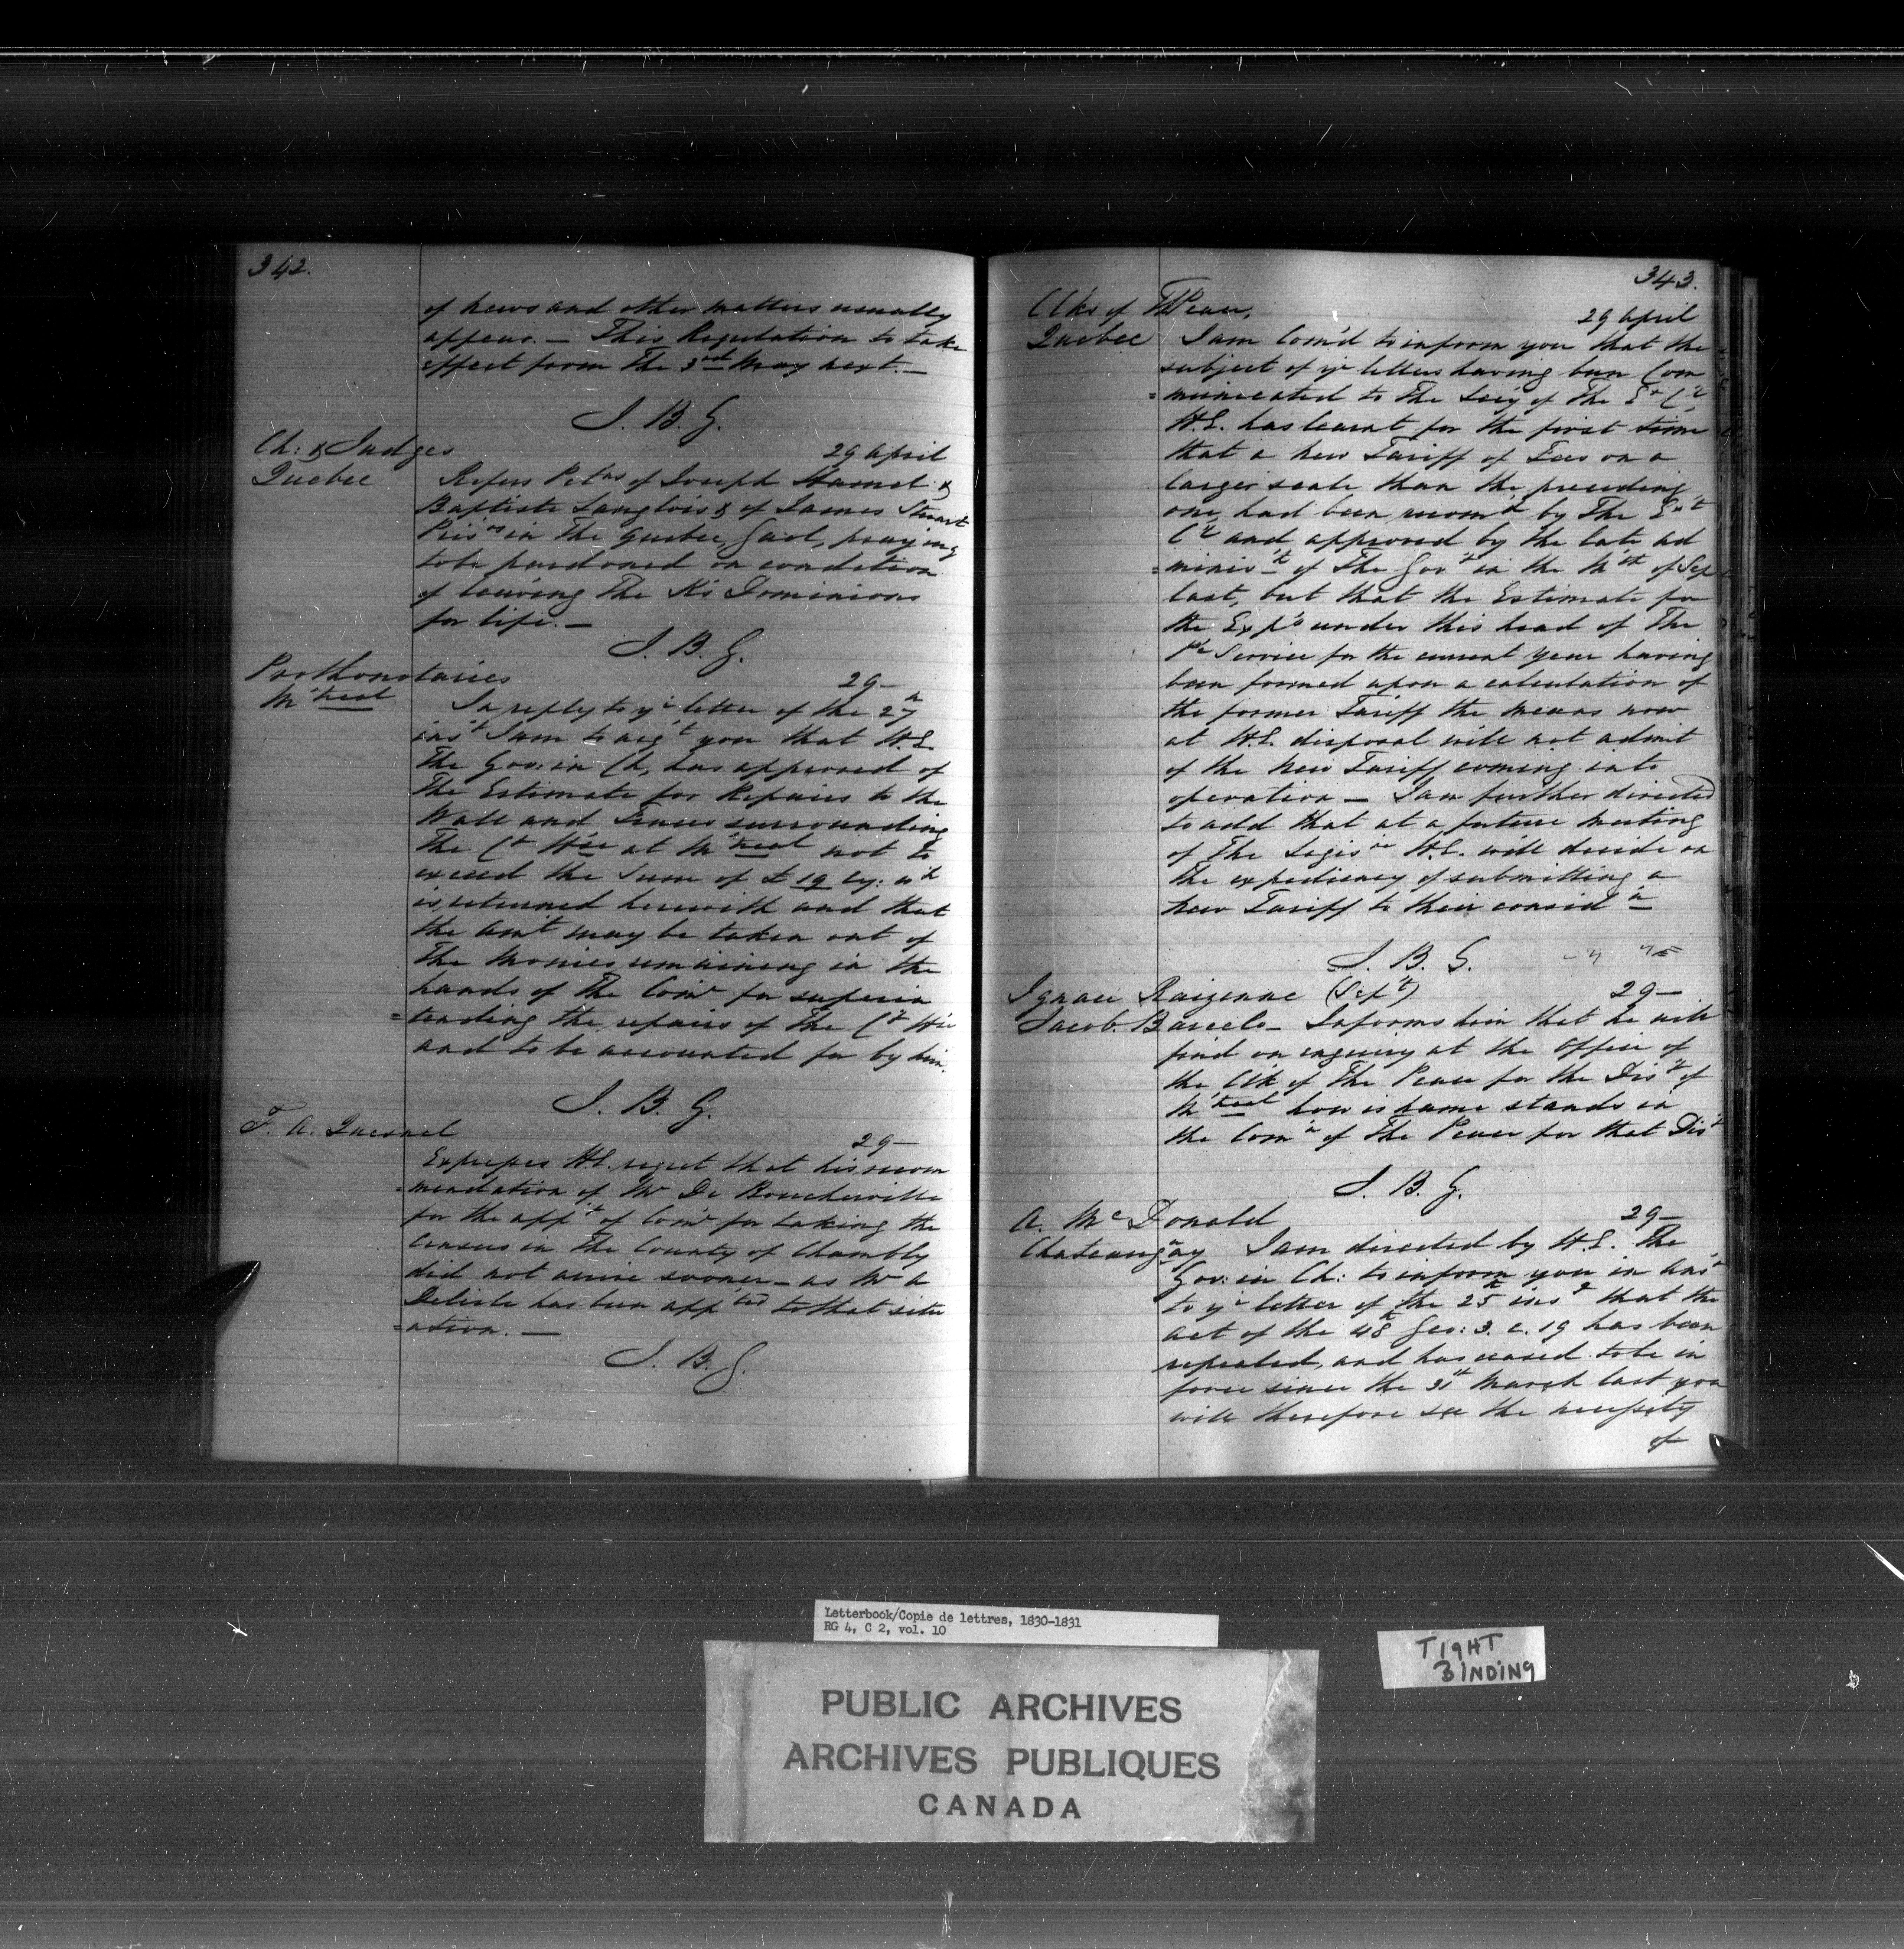 342.
of news and other matters usually
appear. — This Regulation to take
effect from the 3rd May next. —
J. B. G.
Ch: & Judges
Quebec
29 April
Refers Petns of Joseph Hamel &
Baptiste Langlois & of James Stuart
Prisrs in the Quebec Gaol, praying
to be pardoned on condition
of leaving the K's Dominions
for life. —
J. B. G.
Prothonotaries
M'treal
29 —
In reply to yr letter of the 27th
inst I am to acqt you that H.E.
the Gov: in Ch, has approved of
the Estimate for Repairs to the
Wall and Fences surrounding
the Ct Hse at M'treal not to
exceed the Sum of £ 19 Cy: wh
is returned herewith and that
the amt may be taken out of
the monies remaining in the
hands of the Comr for superin
=tending the repairs of the Ct Hse
and to be accounted for by him.
J. B. G.
F. A. Quesnel
29 —
Expresses H.E. regret that his recom
=mendation of Mr De Boucherville
for the appt of Comr for taking the
Census in the County of Chambly
did not arrive sooner — as Mr A
Delisle has been appted to that situ
=ation. —
J. B. G.
343.
Clks of The Peace,
Quebec
29 April
I am Com'd to inform you that the
subject of yr letters having been Com
=municated to the Secy of the Ex Cl
H.E. has learnt for the first time
that a new Tariff of Fees on a
larger scale than the preceding
one, had been recomd by the Ext
Cl and approved by the late ad
=minist of the Govt in the Mth of Sep
last, but that the Estimate for
the Exp's under this head of the
Pc Service for the current year having
been formed upon a calculation of
the former Tariff the means now
at H.E. disposal will not admit
of the New Tariff coming into
operation — I am further directed
to add that at a future meeting
of the Legisre H.E. will decide on
the expediency of submitting a
new Tariff to their considn
J. B. G.
Ignace Raizenne (Sept)
Jacob Barcelo —
29 —
Informs him that he will
find on enquiry at the Office of
the Clk of the Peace for the Dist of
M'treal how is name stands in
the Comn of the Peace for that Dist
J. B. G.
A. McDonald
Chateaugay
29 —
I am directed by H.E. The
Gov: in Ch: to inform you in
to yr letter of the 25th inst that the
act of the 48th Geo: 3. c. 19 has been
repealed, and has ceased to be in
force since the 31st March last you
will therefore see the necessity
of
Letterbook/Copie de lettres, 1830-1831
RG 4, C 2, vol. 10
PUBLIC ARCHIVES
ARCHIVES PUBLIQUES
CANADA
TIGHT
BINDING